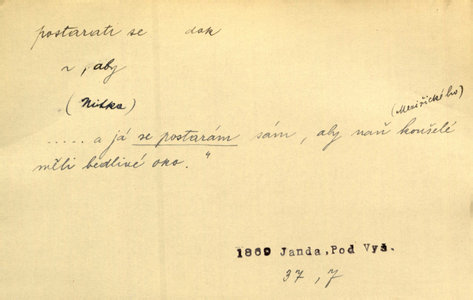 postarati se dok
~, aby
(Nitka)
(Meziřického)
..... a já se postarám sám, aby naň konšelé
měli bedlivé oko."
1869 Janda, Pod Vyš.
37, 7